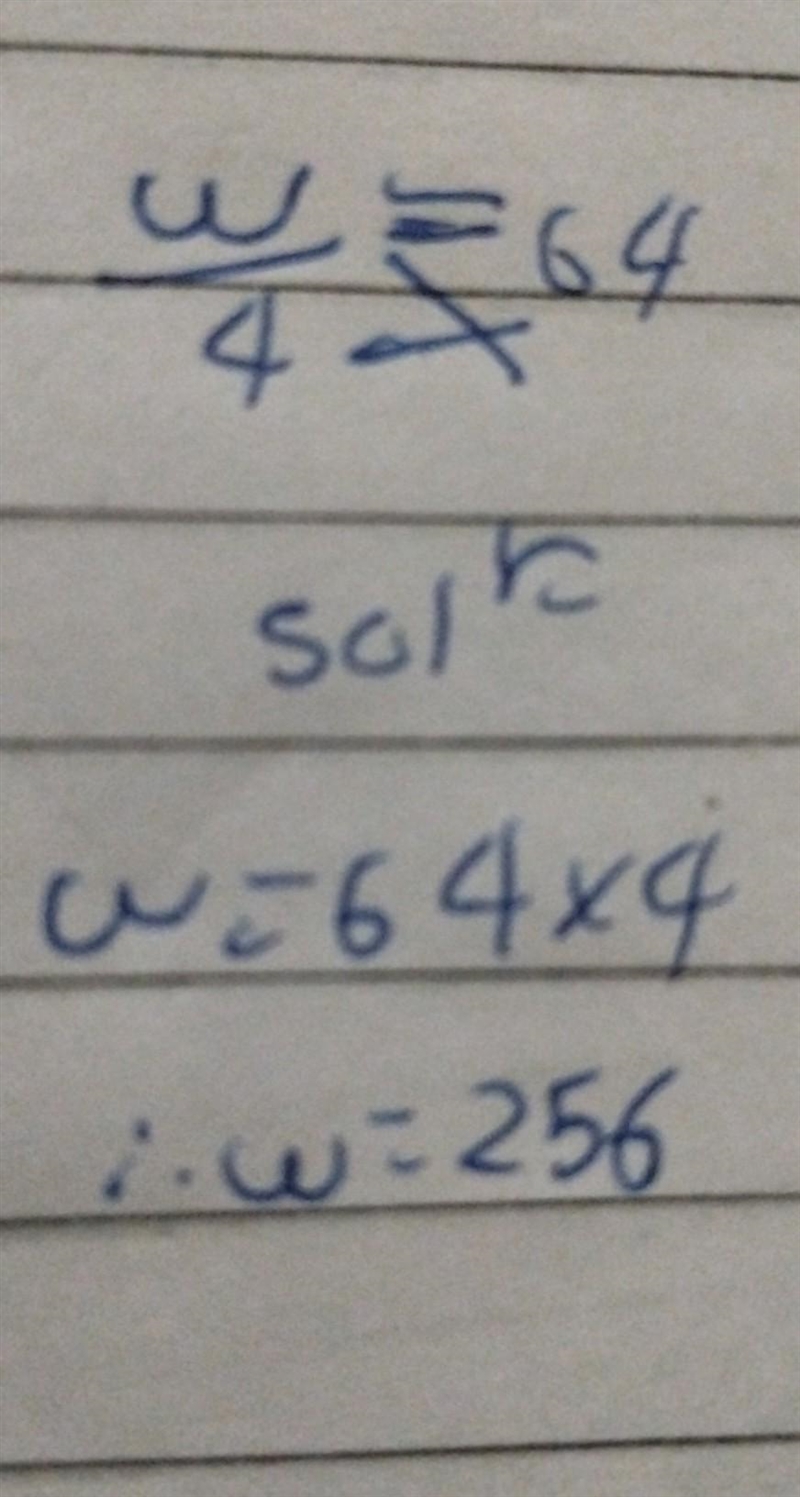 w/4 = 64
solⁿ
w = 64 × 4
∴ w = 256